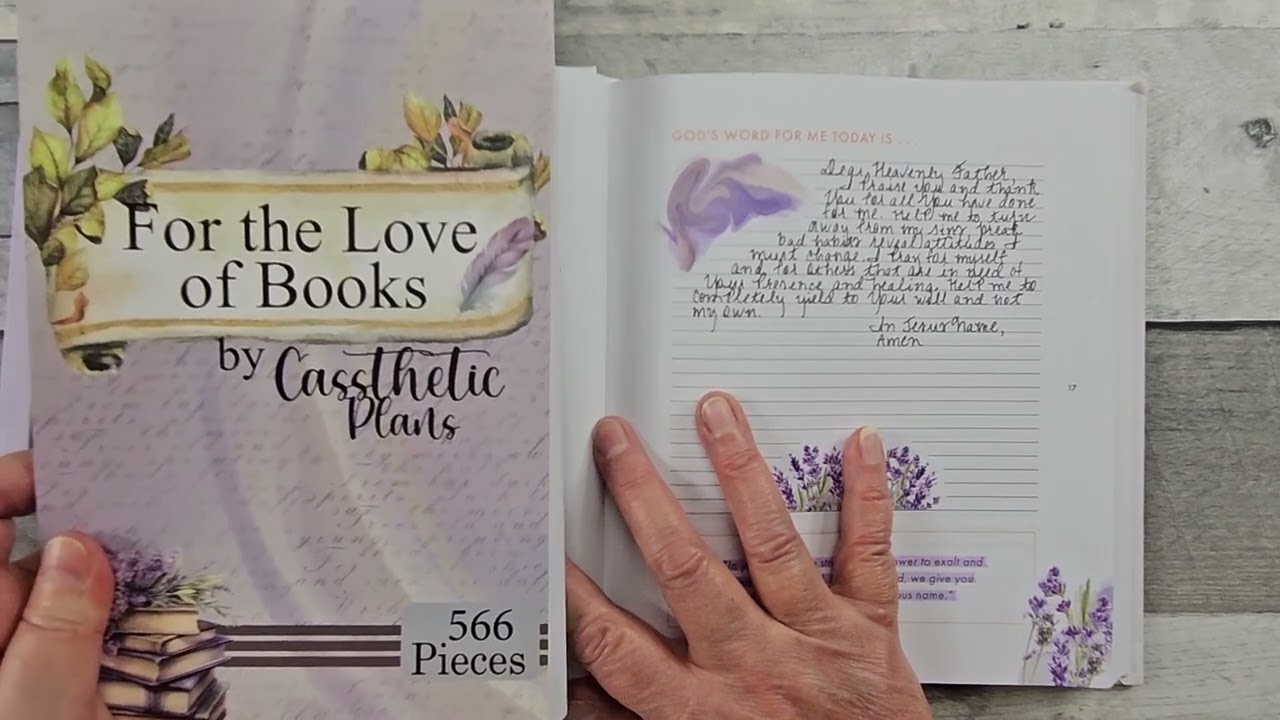 For the Love
of Books
by Cassthetic
Plans
566
Pieces
GOD'S WORD FOR ME TODAY IS . . .
Dear Heavenly Father,
I praise you and thank
You for all You have done
for me. Help me to turn
away from my sins, break
bad habits reveal attitudes I
must change. I pray for myself
and for others that are in need of
Your Presence and healing. Help me to
completely yield to Your will and not
my own.
In Jesus' Name,
Amen
17
to exalt and
we give you
name."